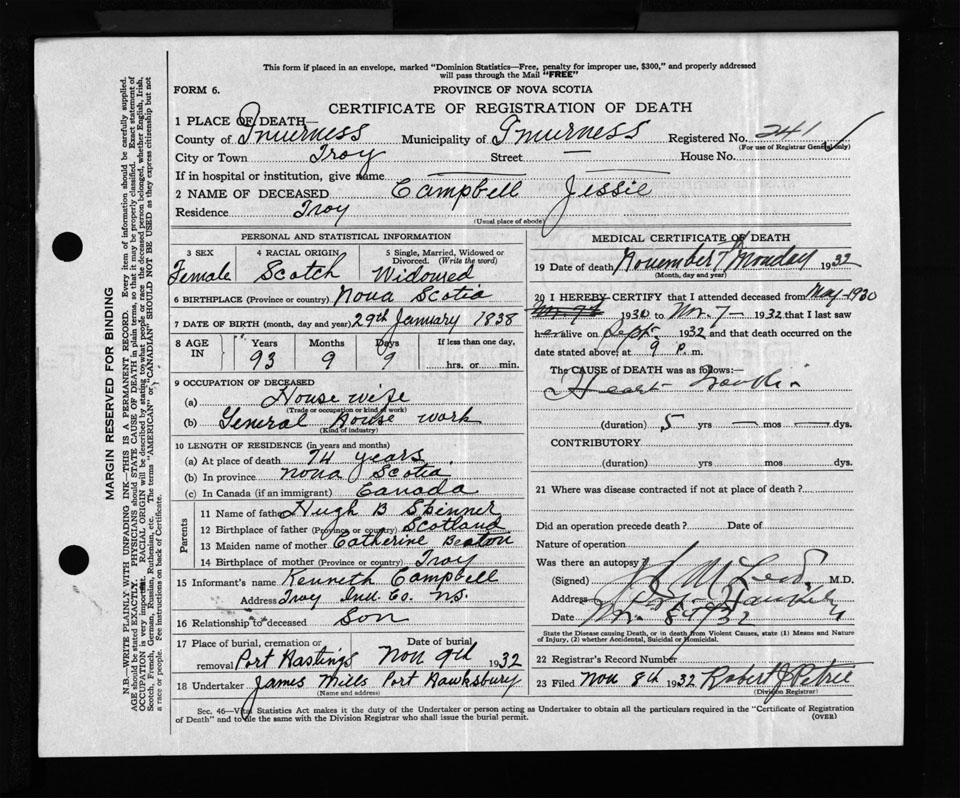 This form if placed in an envelope, marked "Dominion Statistics—Free, penalty for improper use, $300," and properly addressed
will pass through the Mail "FREE"
FORM 6.
PROVINCE OF NOVA SCOTIA
CERTIFICATE OF REGISTRATION OF DEATH
1 PLACE OF DEATH—
County of Inverness Municipality of Inverness Registered No. 241
(For use of Registrar General only)
City or Town Troy Street — House No.
If in hospital or institution, give name
2 NAME OF DECEASED Campbell Jessie
Residence Troy
(Usual place of abode)
PERSONAL AND STATISTICAL INFORMATION
3 SEX 4 RACIAL ORIGIN 5 Single, Married, Widowed or Divorced. (Write the word)
Female Scotch Widowed
6 BIRTHPLACE (Province or country) Nova Scotia
7 DATE OF BIRTH (month, day and year) 29th January 1838
8 AGE IN Years Months Days If less than one day,
93 9 9 hrs. or min.
9 OCCUPATION OF DECEASED
(a) House wife
(Trade or occupation or kind of work)
(b) General House work
(Kind of industry)
10 LENGTH OF RESIDENCE (in years and months)
(a) At place of death 74 years
(b) In province Nova Scotia
(c) In Canada (if an immigrant) Canada
Parents
11 Name of father Hugh B Skinner
12 Birthplace of father (Province or country) Scotland
13 Maiden name of mother Catherine Beaton
14 Birthplace of mother (Province or country) Troy
15 Informant's name Kenneth Campbell
Address Troy Ind. Co. N.S.
16 Relationship to deceased Son
17 Place of burial, cremation or Date of burial
removal Port Hastings Nov 9th 1932
18 Undertaker James Mills Port Hawksbury
(Name and address)
MEDICAL CERTIFICATE OF DEATH
19 Date of death November 7th Monday 1932
(Month, day and year)
20 I HEREBY CERTIFY that I attended deceased from May 1930
1930 to Nov. 7— 1932 that I last saw
her alive on Sept. 1932 and that death occurred on the
date stated above, at 9 p. m.
The CAUSE OF DEATH was as follows:—
Heart
(duration) 5 yrs — mos — dys.
CONTRIBUTORY
(duration) yrs. mos. dys.
21 Where was disease contracted if not at place of death?
Did an operation precede death? Date of
Nature of operation
Was there an autopsy?
(Signed) McLeod M.D.
Address
Date 8th/32
State the Disease causing Death, or in death from Violent Causes, state (1) Means and Nature
of Injury, (2) whether Accidental, Suicidal or Homicidal.
22 Registrar's Record Number
23 Filed Nov 8th 1932 Robert J Petrie
(Division Registrar)
Sec. 46—Vital Statistics Act makes it the duty of the Undertaker or person acting as Undertaker to obtain all the particulars required in the "Certificate of Registration
of Death" and to file the same with the Division Registrar who shall issue the burial permit.
(OVER)
MARGIN RESERVED FOR BINDING
N.B.—WRITE PLAINLY WITH UNFADING INK—THIS IS A PERMANENT RECORD. Every item of information should be carefully supplied.
AGE should be stated EXACTLY. PHYSICIANS should STATE CAUSE OF DEATH in plain terms, so that it may be properly classified. Exact statement of
OCCUPATION is very important. RACIAL ORIGIN will be described by stating to what people or race the deceased person belonged, whether English, Irish,
Scotch, French, German, Russian, Ruthenian, etc. The terms "AMERICAN" or "CANADIAN" SHOULD NOT BE USED as they express citizenship but not
a race or people. See instructions on back of Certificate.